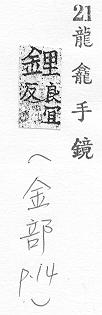 21龍龕手鏡
鋰良冝
反
(金部
p.14)